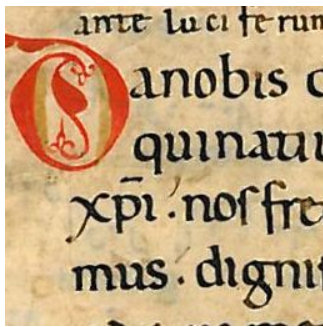 ante luciferum
Da nobis
qui natiu
xp̄i· nos fre
mus· digni